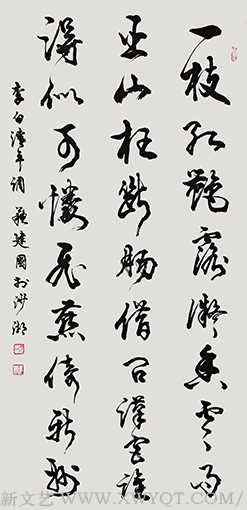 一枝紅艷露凝香雲雨
巫山枉斷腸借問漢宮誰
得似可憐飛燕倚新妝
李白清平調 建國於沙湖
新文艺 - WWW.XWYQT.COM